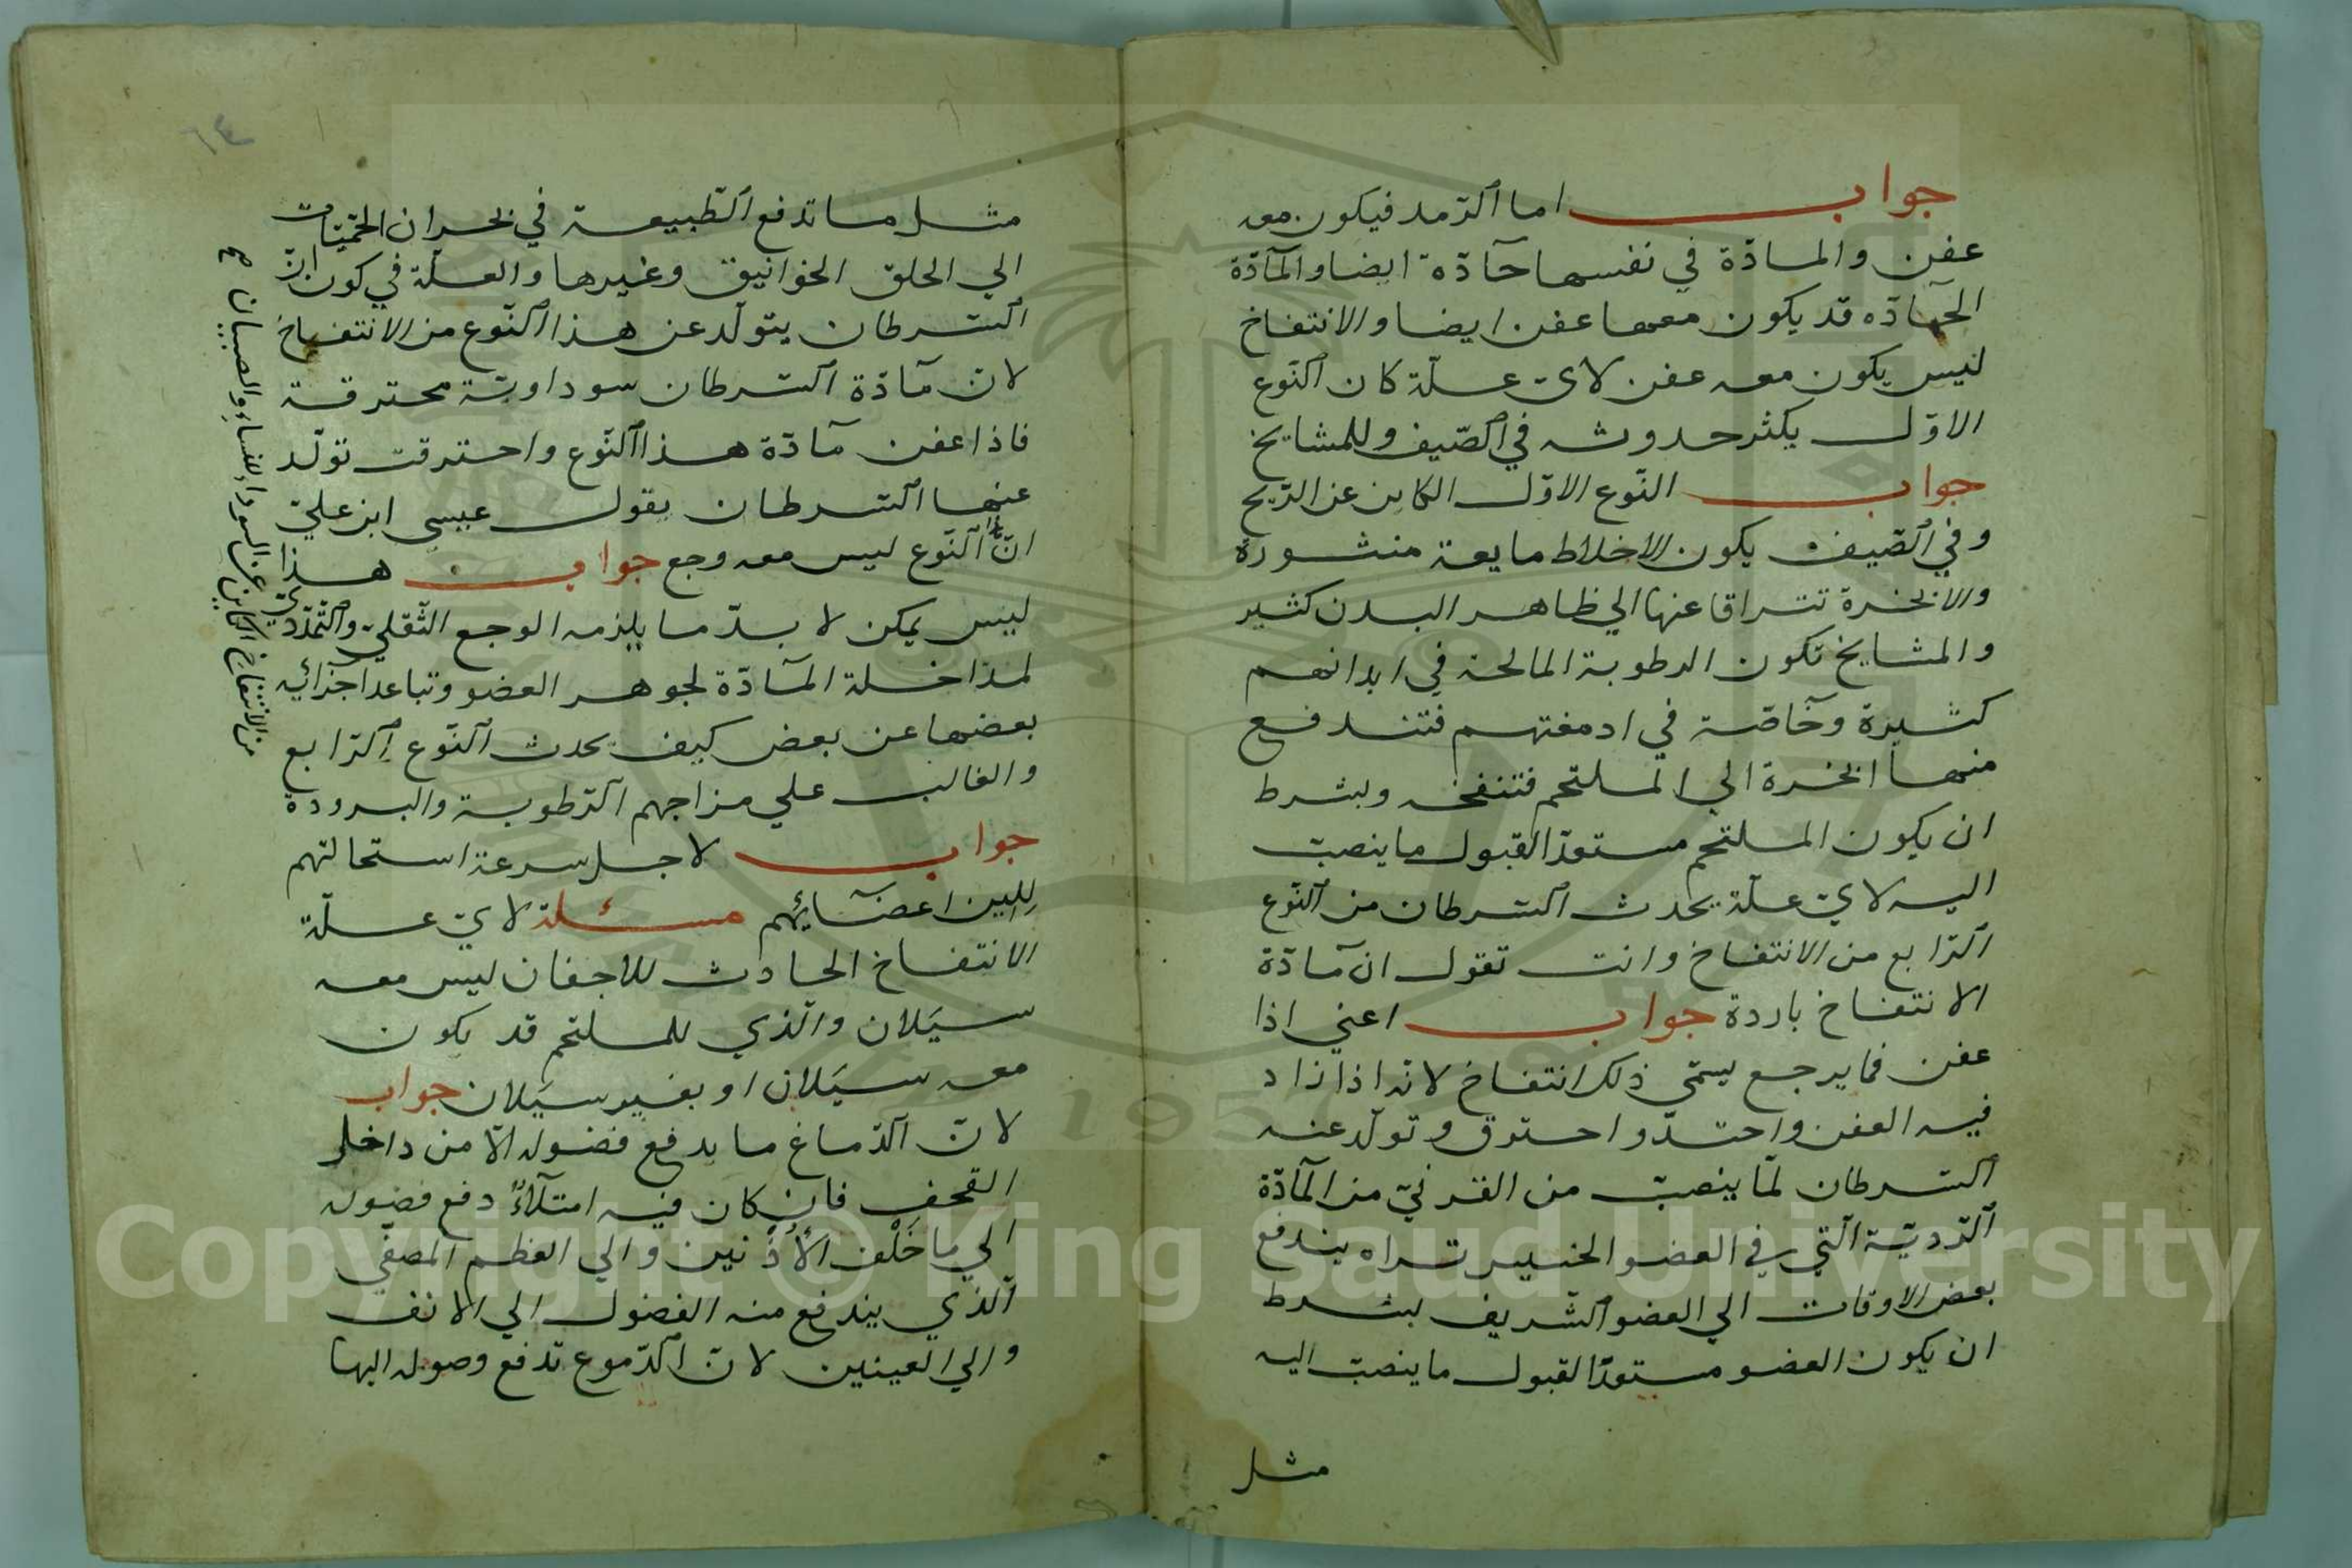 جواب اما الرّمد فيكون معه
عفن والمادّة في نفسها حآدّة ايضا والمآدّة
الحآدّه قد يكون معها عفن ايضا والانتفاخ
ليس يكون معه عفن لايّ علّة كان النّوع
الاوّل يكثر حدوثه في الصّيف وللمشايخ
جواب النّوع الاوّل الكاين عن الرّيح
وفي الصّيف يكون الاخلاط مايعة منشورة
والابخرة تتراقا عنها الي ظاهر البدن كثير
والمشايخ تكون الرطوبة المالحة في ابدانهم
كثيرة وخآصّة في ادمغتهم فتندفع
منها ابخرة الي الملتحم فتنفخه وبشرط
ان يكون الملتحم مستعدّا لقبول ما ينصبّ
اليه لايّ علّة يحدث السّرطان من النّوع
الرّابع من الانتفاخ وانت تقول ان مآدّة
الانتفاخ باردة جواب اعني اذا
عفن فما يرجع يسمّي ذلك انتفاخ لانّه اذا زاد
فيه العفن واحتدّ واحترق وتولّد عنه
السّرطان لمّا ينصبّ من القرنيّ من المآدّة
الرّديّة الّتي في العضو الخسيس تراه يندفع
بعض الاوقات الي العضو الشّريف بشرط
ان يكون العضو مستعدّا لقبول ما ينصبّ اليه
مثل
٦٤
مثل ما تدفع الطّبيعة في بحران الحمّيات
الي الحلق الخوانيق وغيرها والعلّة في كون انّ
السّرطان يتولّد عن هذا النّوع من الانتفاخ
لانّ مآدّة السّرطان سوداويّة محترقة
فاذا عفن مآدّة هذا النّوع واحترقت تولّد
عنها السّرطان يقول عيسي ابن عليّ
انّ النّوع ليس معه وجع جواب هذا
ليس يمكن لا بدّ ما يلزمه الوجع الثّقليّ والتّمدّديّ
لمداخلة المآدّة لجوهر العضو وتباعد اجزآئه
بعضها عن بعض كيف يحدث النّوع الرّابع
والغالب علي مزاجهم الرّطوبة والبرودة
جواب لاجل سرعة استحالتهم
للين اعضآئهم مسئلة لايّ علّة
الانتفاخ الحادث للاجفان ليس معه
سيَلان والّذي للملتحم قد يكون
معه سيَلان او بغير سيَلان جواب
لانّ الدّماغ ما يدفع فضوله الّا من داخل
القحف فان كان فيه امتلآءٌ دفع فضوله
الي ما خَلْف الأُذُنين والي العظم المصفّي
الّذي يندفع منه الفضول الي الانف
والي العينين لانّ الدّموع تدفع وصوله اليها
من الانتفاخ الكاين عن السوداء للنساء والصبيان صح